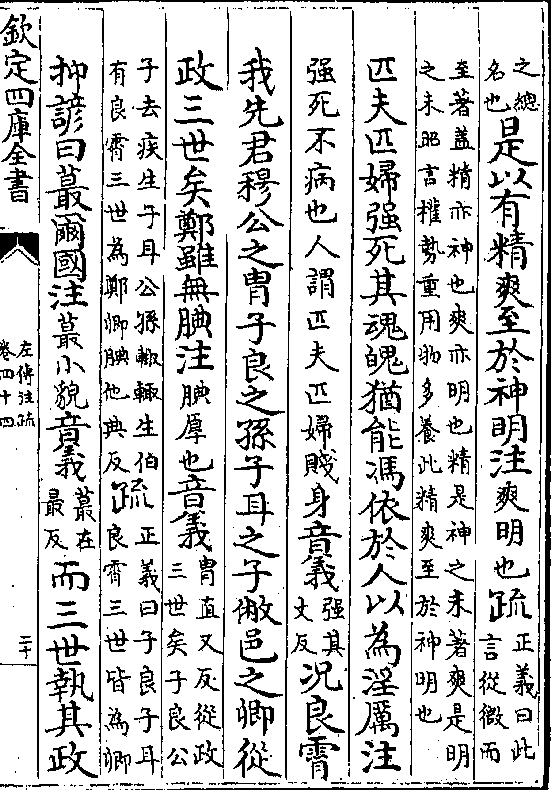 之總
名也
是以有精爽至於神明注爽明也疏
正義曰此
言從微而
至著蓋精亦神也爽亦明也精是神之未著爽是明
之未昭言權勢重用物多養此精爽至於神明也
匹夫匹婦强死其魂魄猶能馮依於人以為淫厲注
强死不病也人謂匹夫匹婦賤身音義
强其
丈反
况良霄
我先君穆公之胄子良之孫子耳之子敝邑之卿從
政三世矣鄭雖無腆注腆厚也音義
胄直又反從政
三世矣子良公
子去疾生子耳公孫輒輒生伯
有良霄三世為鄭卿腆他典反
疏
正義曰子良子耳
良霄三世皆為卿
抑諺曰蕞爾國注蕞小貌音義
蕞在
最反
而三世執其政
欽定四庫全書
左傳注疏
卷四十四
二十